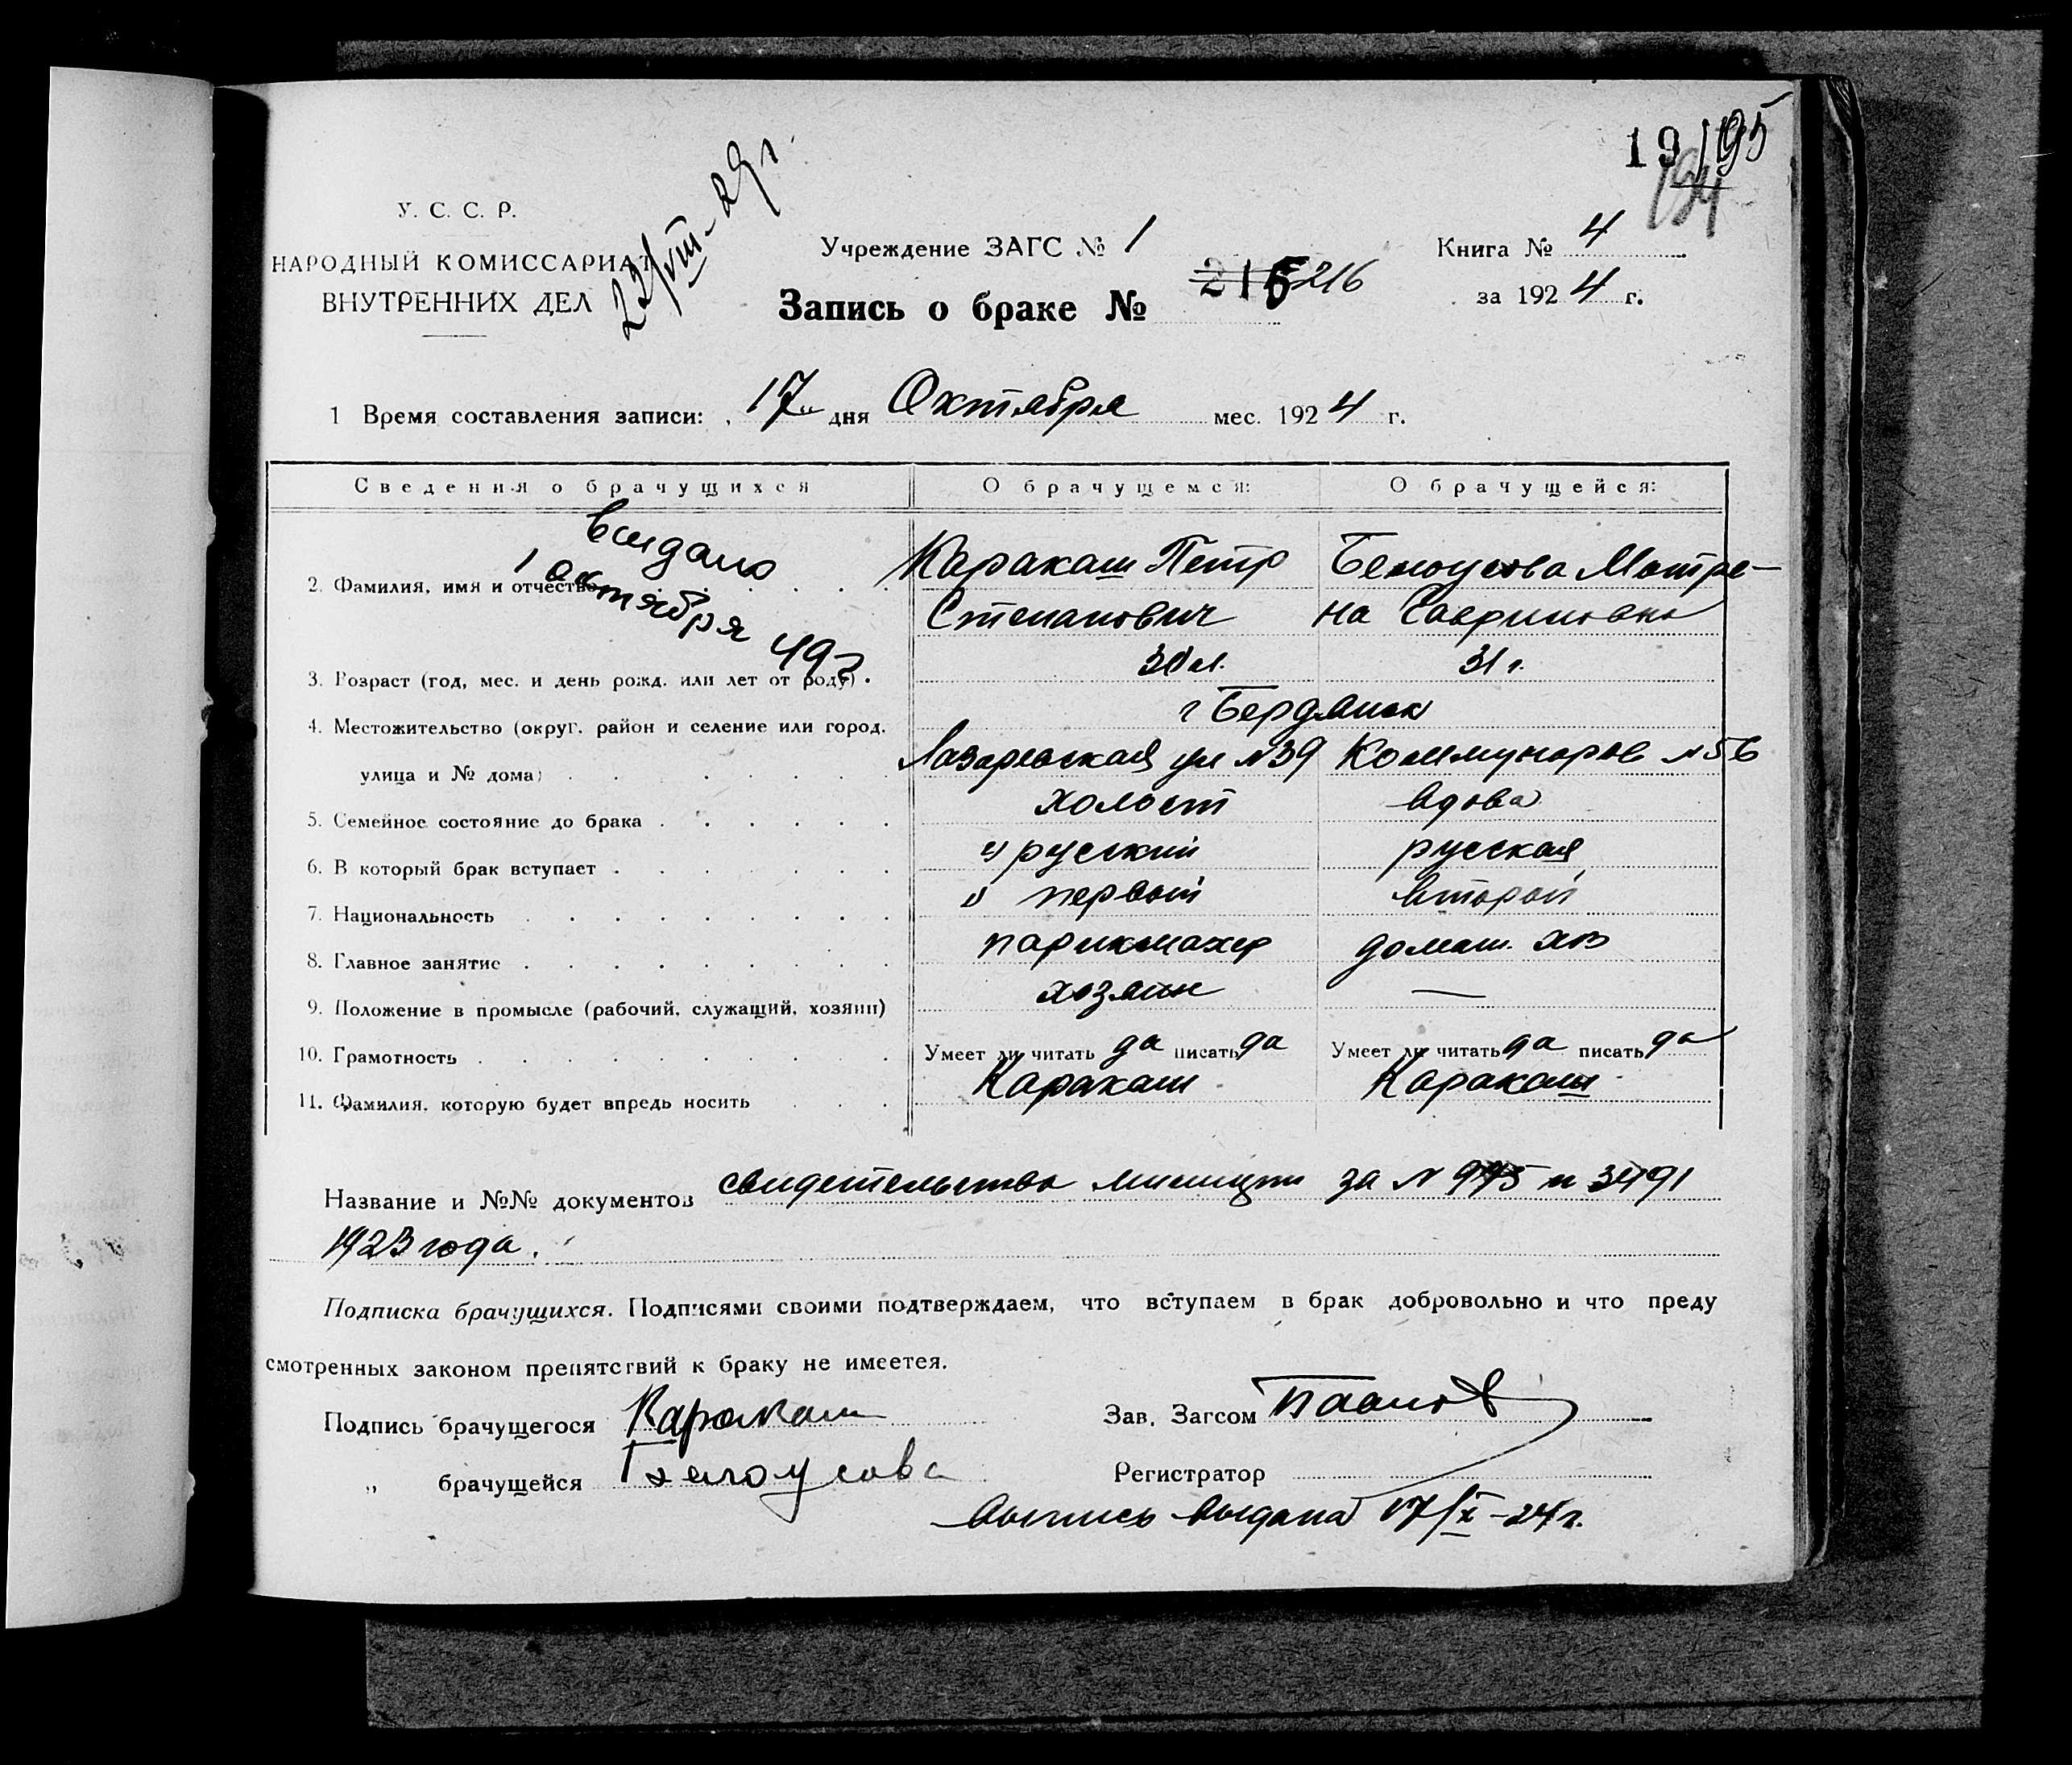 19 195
194
У. С. С. Р.
НАРОДНЫЙ КОМИССАРИАТ
ВНУТРЕННИХ ДЕЛ
22/VIII-29г.
Учреждение ЗАГС № 1
Книга № 4
Запись о браке № 216 216
за 1924 г.
1 Время составления записи: 17 дня Октября мес. 1924 г.
Сведения о брачущихся О брачущемся: О брачущейся:
выдано
1 октября 49г
2. Фамилия, имя и отчество Каракаш Петр Белоусова Матре-
Степанович на Гавриловна
3. Возраст (год, мес. и день рожд. или лет от роду) 31 г.
4. Местожительство (округ, район и селение или город, г Бердянск
улица и № дома) Лазаревская ул №39 Коммунаров №56
5. Семейное состояние до брака холост вдова
6. В который брак вступает русский русская
7. Национальность первый второй
8. Главное занятие парикмахер домаш. хоз
9. Положение в промысле (рабочий, служащий, хозяин) хозяин —
10. Грамотность Умеет ли читать да писать да Умеет ли читать да писать да
11. Фамилия, которую будет впредь носить Каракаш Каракаш
Название и №№ документов свидетельства милиции за № 975 и 3491
1923 года.
Подписка брачущихся. Подписями своими подтверждаем, что вступаем в брак добровольно и что преду
смотренных законом препятствий к браку не имеется.
Подпись брачущегося Каракаш Зав. Загсом
„ брачущейся Белоусова Регистратор
Выпись выдана 17/X-24г.